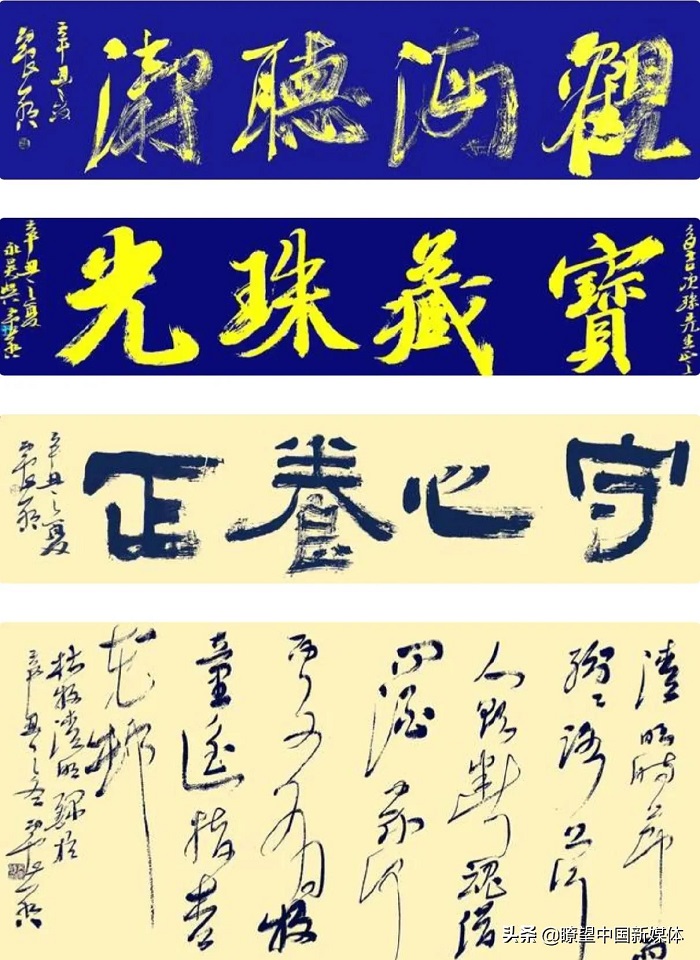 觀海聽潮
辛丑之
寶藏珠光
辛丑之夏
守心養正
辛丑之夏
清明時節雨
紛紛路上行
人欲斷魂借
問酒家何
牧
童遙指杏
花村
杜牧清明
辛丑之冬
头条 @瞭望中国新媒体